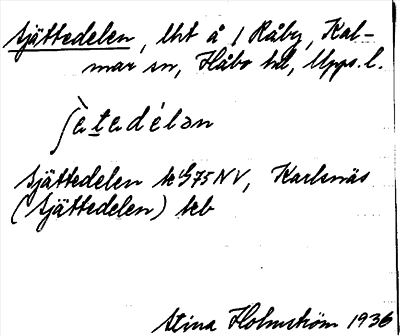 Sjättedelen, lht å 1 Råby, Kal-
mar sn, Håbo hd, Upps. l.
ʃætedélən
Sjättedelen 75NV, Karlsnäs
(Sjättedelen) teb
Stina Holmström 1936